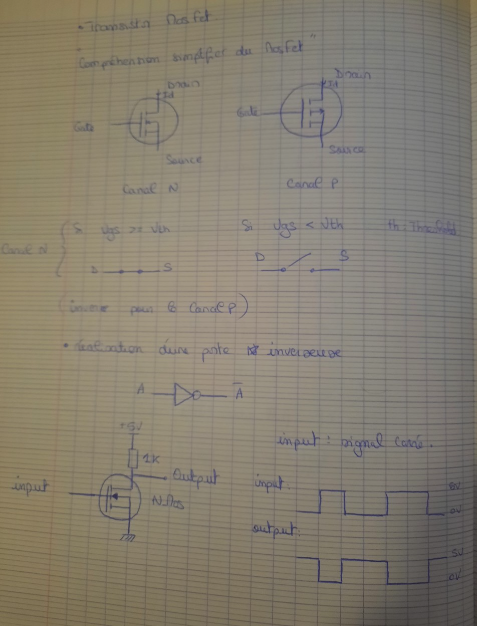 • Transistor Mosfet
"Compréhension simplifier du Mosfet"
Drain
Id
Gate
Source
Canal N
Drain
Id
Gate
Source
Canal P
Canal N
Si Vgs >= Vth
D S
Si Vgs < Vth
D S
th: Threshold
(inverse pour le Canal P)
• réalisation d'une porte inverseuse
A A̅
+5V
1K
Output
input
N.Mos
input : signal carré.
input:
5V
0V
output:
5V
0V